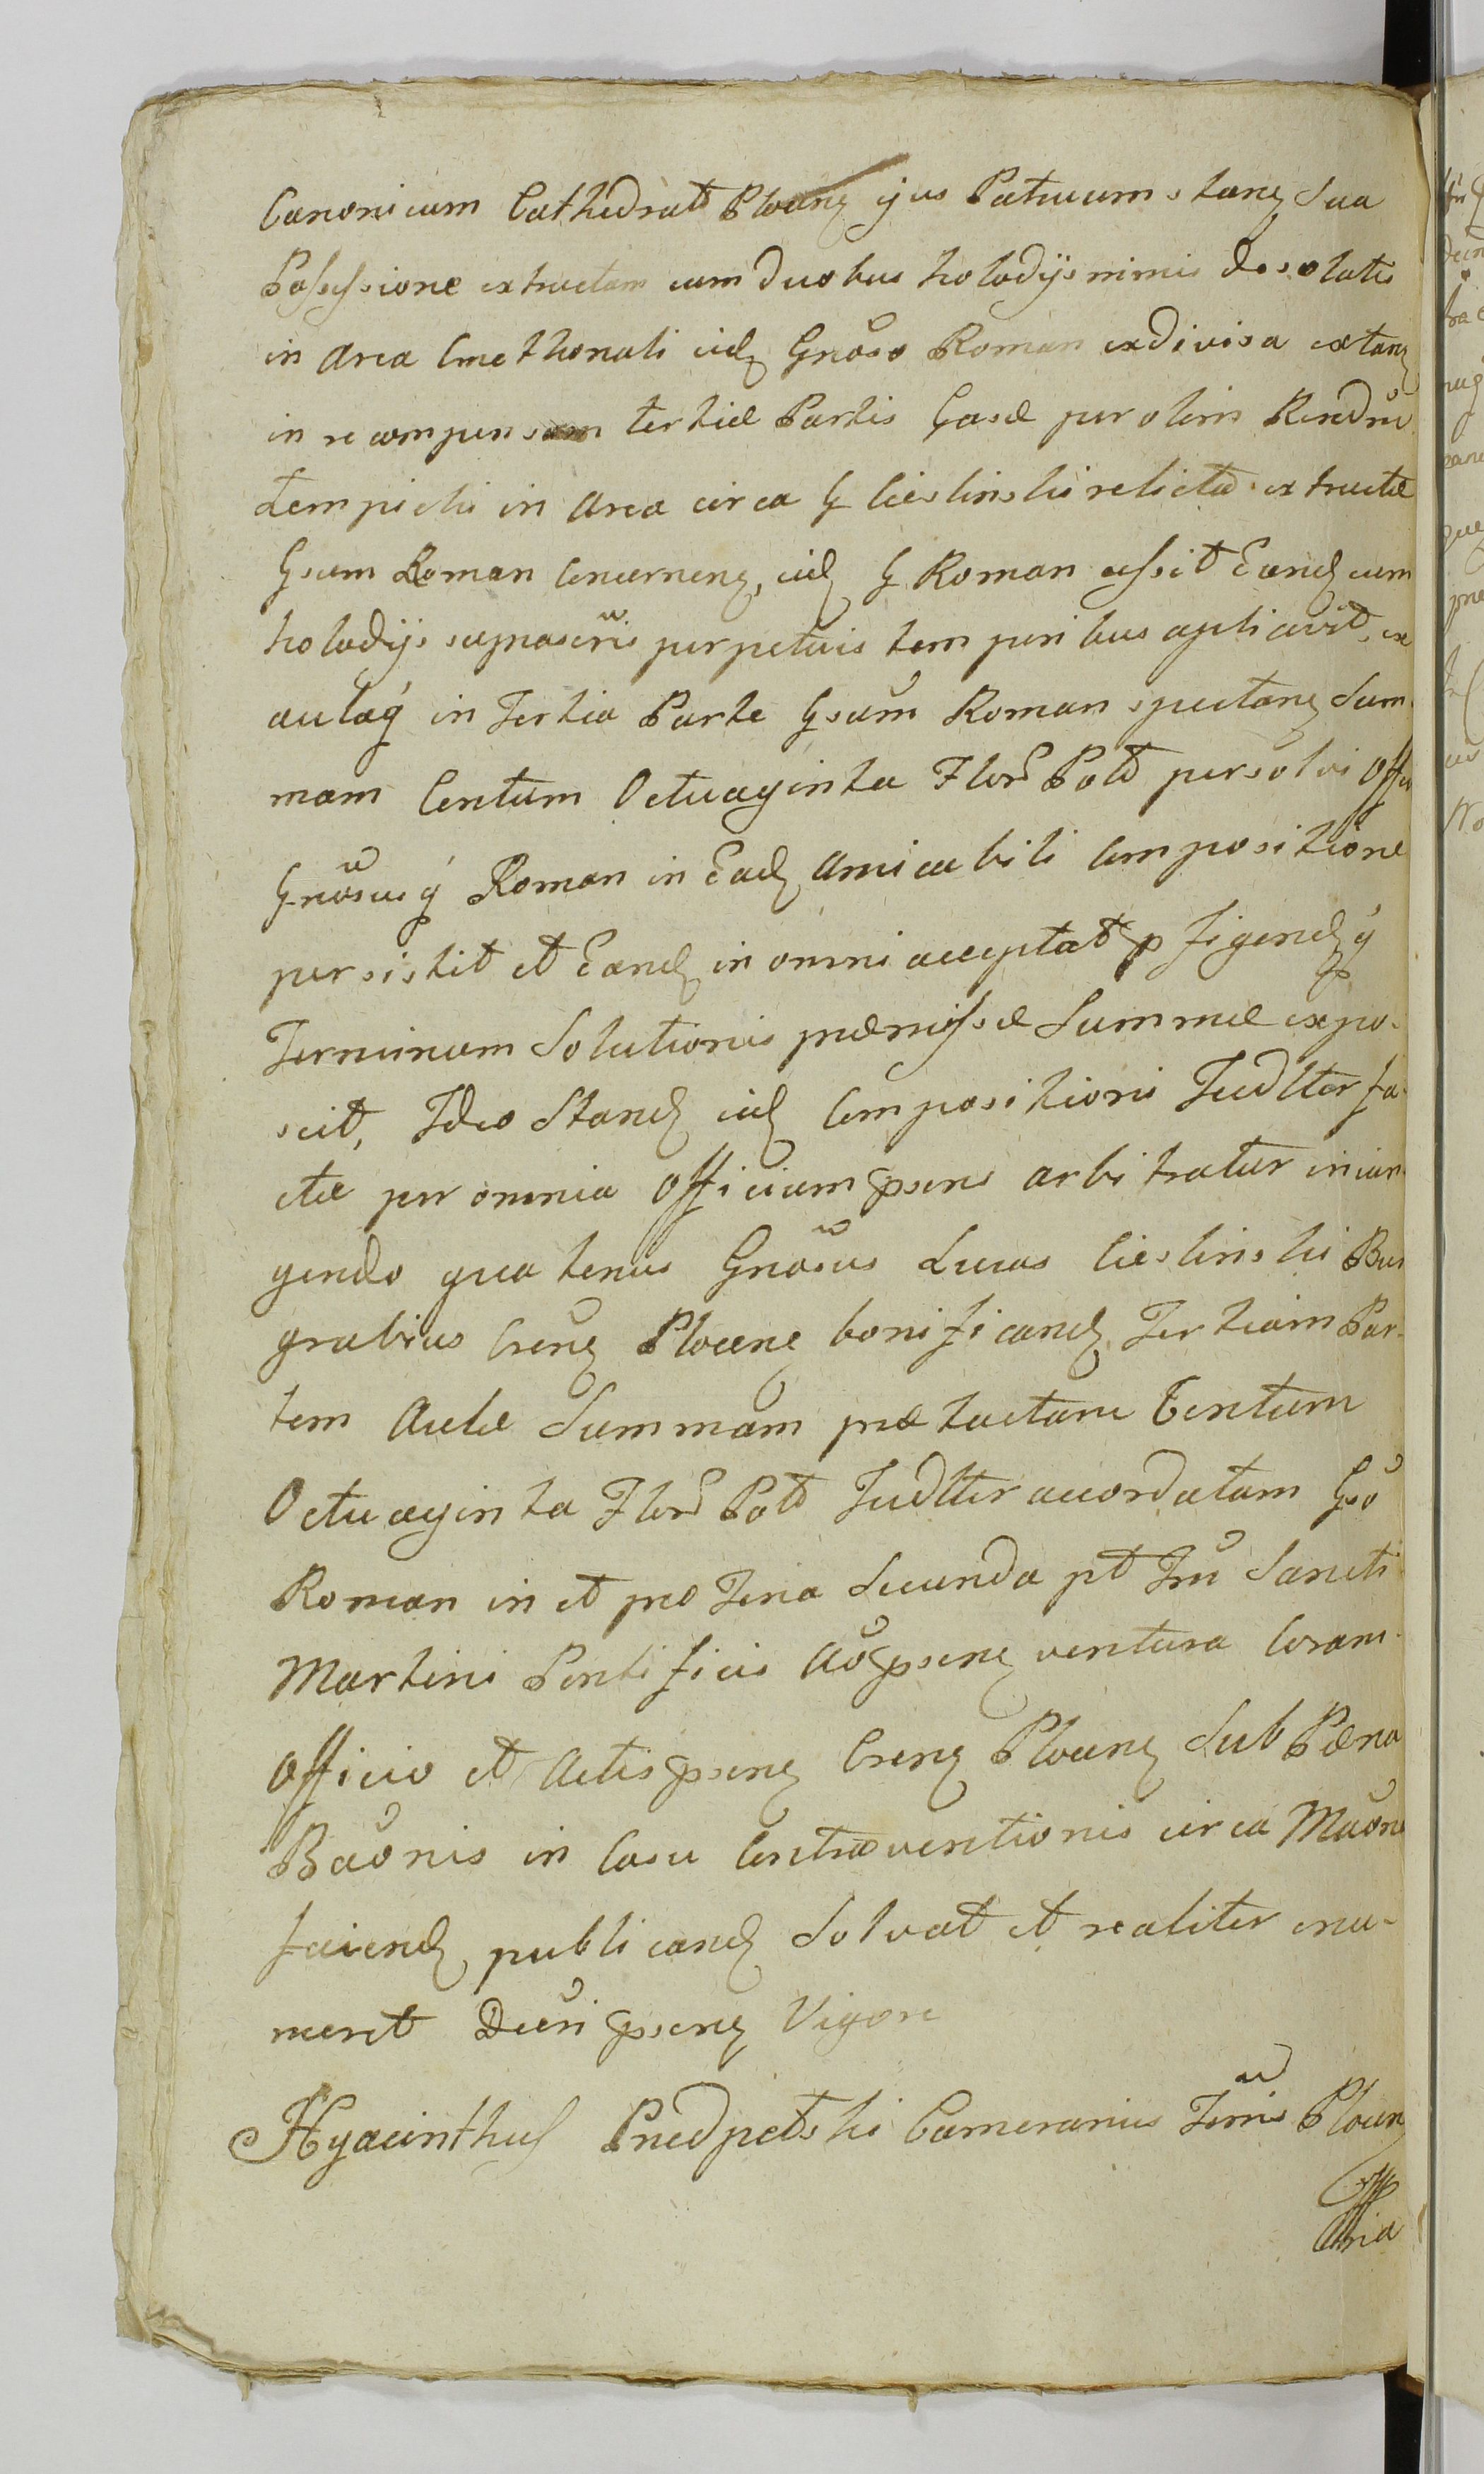 Canonicum Cathedral Plocen ejus Patruum stan Sua
Possessione extructam cum duobus holodijs nimis desolatis
in Area Cmethonali eid Gnoso Roman exdivisa extan
in recompensam tertiæ Partis Casæ per olim
Lempicki in Area circa G Cieslinski relictæ extructæ
Gsum Roman Concernen, eid G Roman cessit Eand cum
holodijs suprascris perpetuis temporibus aplicavit, ex
aulaq in Tertia Parte Gsum Roman spectan Sum-
mam Centum Octuaginta Flor Pol persolvi
Gnosusq Roman in Ead Amicabili Compositione
persistit et Eand in omni acceptat p figendq
Terminum Solutionis præmissæ Summæ expo-
scit, Ideo Stand eid Compositioni Judltter fa-
ctæ per omnia Officium psens arbitratur iniun-
gendo quatenus Gnosus Lucas Cieslinski Bur
grabius Cren Plocen bonificand Tertiam Par-
tem Aulæ Summam prætactam Centum
Octuaginta Flor Pol Judltter accordatam Gso
Roman in et pro Feria Secunda pt Fru Sancti
Martini Pontificis Ao psen ventura Coram
Officio et Actis psen Cren Plocen Sub Pæna
Baonis in Casu Contraventionis circa Maone
faciend publicand Solvat et realiter enu-
meret Decri psen Vigore
Hyacinthus Przedpelski Camerarius Terris Plocen